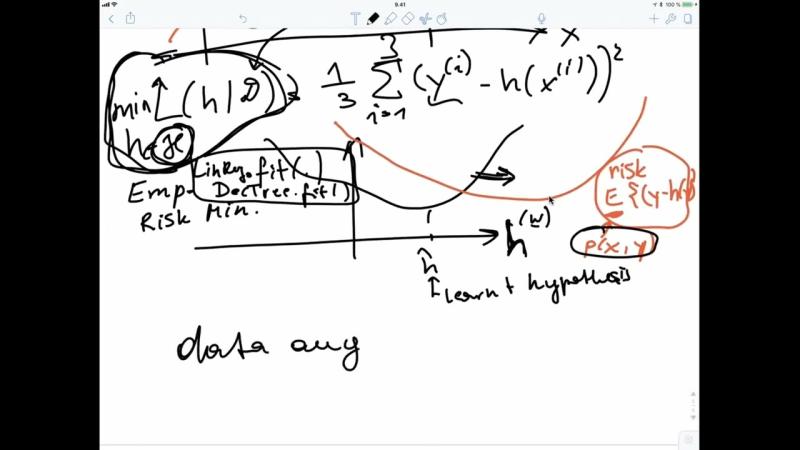 9.41
100 %
X
min L(h|D)
h∈H
1/3 3∑i=1 (y^(i) - h(x^(i)))²
LinReg.fit(.)
DecTree.fit()
Emp.
Risk Min.
risk
E {(y-h(x)
p(x,y)
h^(w)
ĥ
learnt hypothesis
data aug